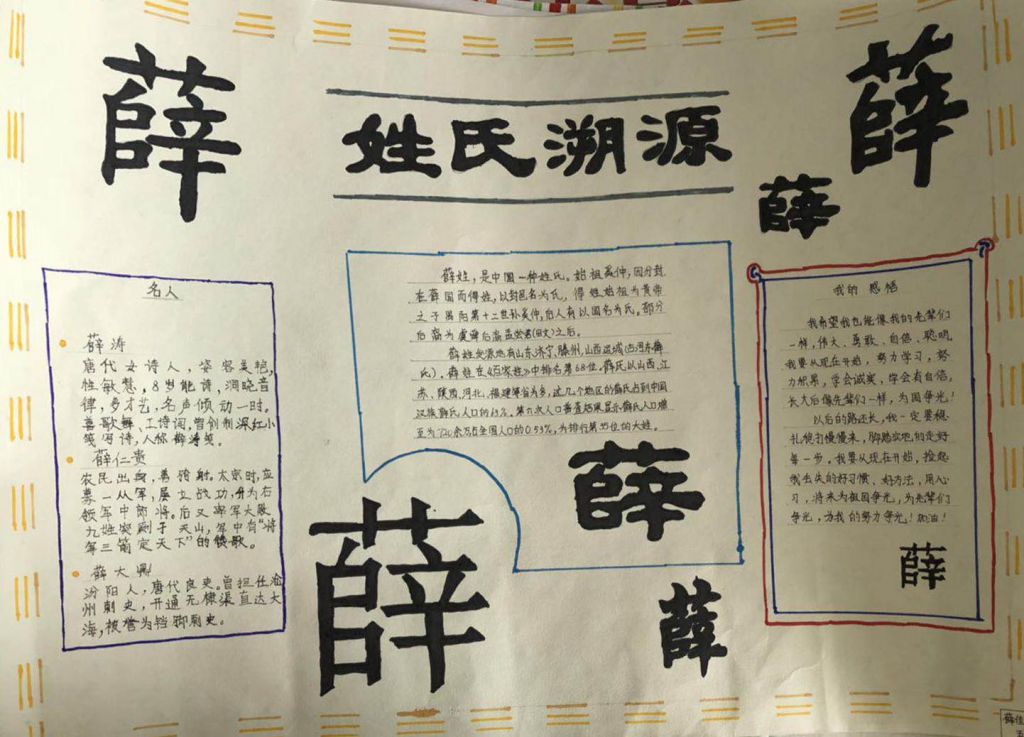 薛
姓氏溯源
薛
薛
名人
薛涛
唐代女诗人，姿容美艳，
性敏慧，8岁能诗，洞晓音
律，多才艺，名声倾动一时。
喜歌舞、工诗词，曾创制深红小
笺写诗，人称薛涛笺。
薛仁贵
农民出身，善骑射，太宗时，应
募一从军，屡立战功，身为右
领军中郎将。后又率军大败
九姓突厥于天山，军中有“将
军三箭定天下”的歌。
薛大鼎
汾阳人，唐代良吏。曾担任沧
州刺史，开通无棣渠直达大
海，被誉为铛脚刺史。
薛姓，是中国一种姓氏。始祖奚仲，因分封
在薛国而得姓，以封邑名为氏，得姓始祖为黄帝
之子禺阳第十二世孙奚仲，后人有以国名为氏。部分
后裔为虞舜后裔孟尝君(田文)之后。
薛姓发源地有山东济宁、滕州，山西运城(古河东薛
氏)。薛姓在《百家姓》中排名第68位。薛氏以山西、江
苏、陕西、河北、福建等省为多，这几个地区的薛氏占到中国
汉族薛氏人口的61%。第六次人口普查结果显示薛氏人口增
至为720余万占全国人口的0.53%，为排行第35位的大姓。
薛
薛
薛
我的 感悟
我希望我也能像我的先辈们
一样，伟大、勇敢、自信、聪明。
我要从现在开始，努力学习，努
力积累，学会诚实，学会有自信。
长大后像先辈们一样，为国争光！
以后的路还长，我一定要稳
扎稳打慢慢来，脚踏实地的走好
每一步，我要从现在开始，捡起
我丢失的好习惯、好方法，用心学
习，将来为祖国争光，为先辈们
争光，为我的努力争光！加油！
薛
薛佳
五